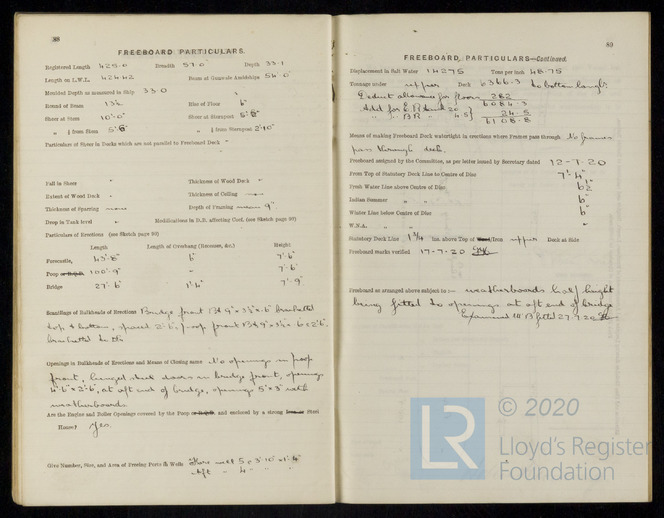 88
FREEBOARD PARTICULARS.
Registered Length 425.0 Breadth 57.0 Depth 33.1
Length on L.W.L. 424.42 Beam at Gunwale Amidships 54.0
Moulded Depth as measured in Ship 33.0
Round of Beam 13½ Rise of Floor 6"
Sheer at Stem 10'.0" Sheer at Sternpost 5'.8"
" ⅛ from Stem 5'.8" " ⅛ from Sternpost 2'.10"
Particulars of Sheer in Decks which are not parallel to Freeboard Deck "
Fall in Sheer " Thickness of Wood Deck "
Extent of Wood Deck " Thickness of Ceiling
Thickness of Sparring Depth of Framing 9"
Drop in Tank level " Modifications in D.B. affecting Coef. (see Sketch page 90)
Particulars of Erections (see Sketch page 90)
Length Length of Overhang (Recesses, &c.) Height
Forecastle, 43'.8" 6" 7'.6"
Poop or R.Q.D. 100'.9" " 7'.6"
Bridge 27'.6" 1'.4" 7'.9"
Scantlings of Bulkheads of Erections Bridge front BA 9" x 3½ x .6 bracketted
top & bottom, spaced 2'.6", poop front BA 9" x 3½ x
bracketted
Openings in Bulkheads of Erections and Means of Closing same No openings in poop
front, hinged steel doors in bridge front, openings
4'.6" x 2'.6", at aft end of bridge, openings 5' x 3' with
weatherboards
Are the Engine and Boiler Openings covered by the Poop or R.Q.D. and enclosed by a strong Iron or Steel
House? Yes.
Give Number, Size, and Area of Freeing Ports in Wells Fore well 5 - 3'.10" x 1'.4"
Aft " 4 - " "
89
FREEBOARD PARTICULARS—Continued.
Displacement in Salt Water 14275 Tons per inch 48.75
Tonnage under upper Deck 6366.3 to bottom
Deduct allowance for floors 282
6084.3
Add for 20
" " 4.5 24.5
6108.8
Means of making Freeboard Deck watertight in erections where Frames pass through No frames
pass through deck.
Freeboard assigned by the Committee, as per letter issued by Secretary dated 12-7-20
From Top of Statutory Deck Line to Centre of Disc 7'.4"
Fresh Water Line above Centre of Disc 6½"
Indian Summer " " 6"
Winter Line below Centre of Disc 6"
W.N.A. " " "
Statutory Deck Line 1¾ ins. above Top of Wood/Iron upper Deck at Side
Freeboard marks verified 17-7-20
Freeboard as arranged above subject to :— weatherboards half height
being fitted to openings at aft end of bridge
Examined W.B. fitted 27.7.20
LR
© 2020
Lloyd's Register
Foundation